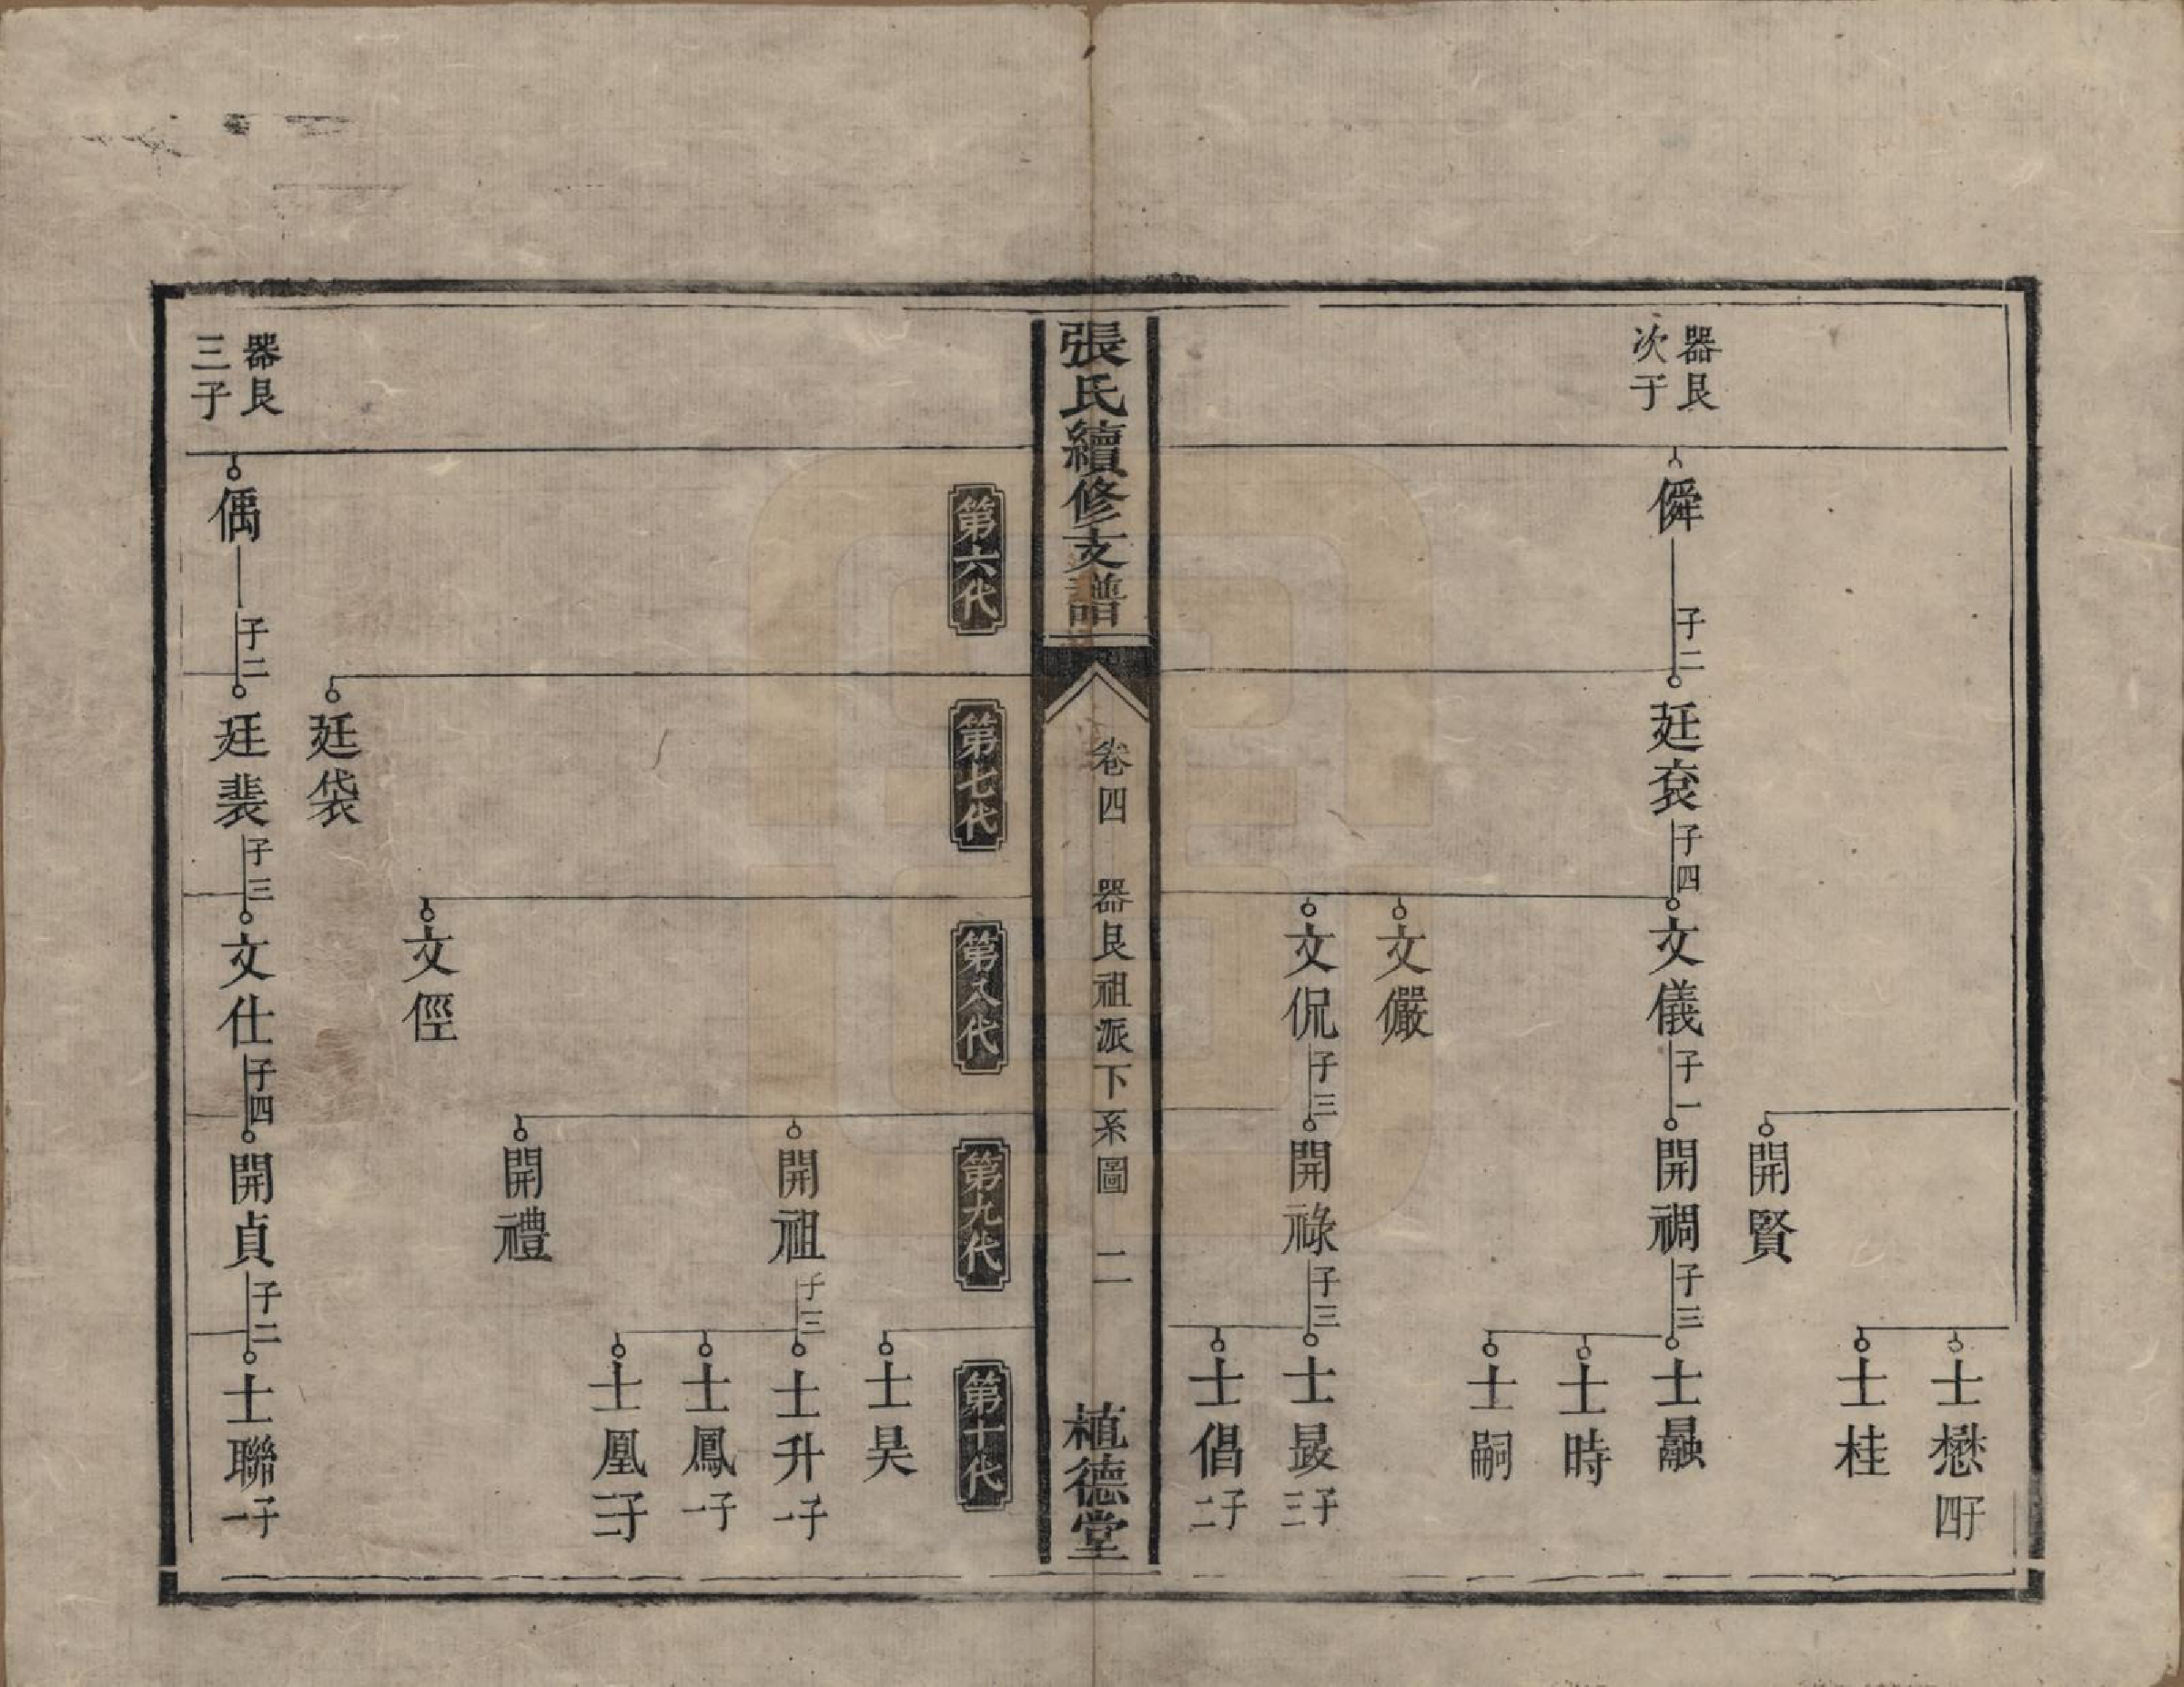 器良
次子
僢
子二
廷袞
子四
文儀
子一
開禂
子三
士㬎
士時
士嗣
開賢
士懋
子四
士桂
文儼
文侃
子三
開祿
子三
士晸
子三
士倡
子二
張氏續修支譜
卷四
器良祖派下系圖
二
植德堂
第六代
第七代
第八代
第九代
第十代
士昊
開祖
子三
士升
子一
士鳳
子一
士凰
子二
開禮
文俓
廷袋
器良
三子
偊
子二
廷裴
子三
文仕
子四
開貞
子二
士聯
子一